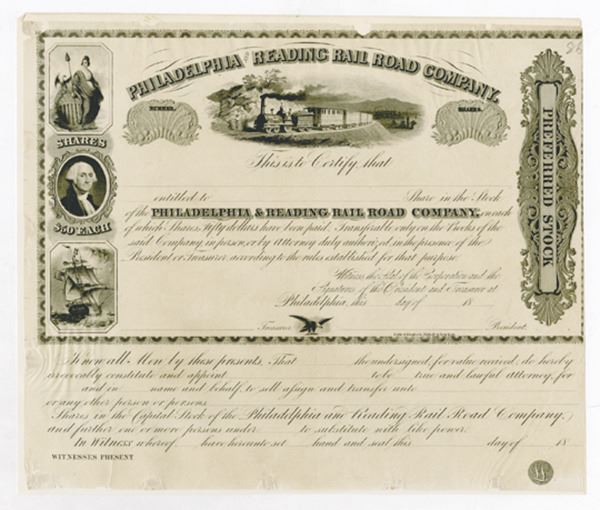 PHILADELPHIA AND READING RAIL ROAD COMPANY.
NUMBER.
SHARES.
SHARES
$50 EACH
PREFERRED STOCK
This is to Certify, that
entitled to Share in the Stock
of the PHILADELPHIA & READING RAIL ROAD COMPANY, on each
of which Shares, Fifty dollars have been paid. Transferable only on the Books of the
said Company, in person, or by Attorney duly authorized, in the presence of the
President or Treasurer, according to the rules established for that purpose.
Witness the Seal of the Corporation and the
Signatures of the President and Treasurer at
Philadelphia, this day of 18
Treasurer. President.
Know all Men by these presents, That the undersigned, for value received, do hereby
irrevocably constitute and appoint to be true and lawful attorney, for
and in name and behalf, to sell, assign and transfer unto
or any other person or persons
Shares in the Capital Stock of the Philadelphia and Reading Rail Road Company,
and further one or more persons under to substitute with like power.
In Witness whereof, have hereunto set hand and seal this day of 18
WITNESSES PRESENT